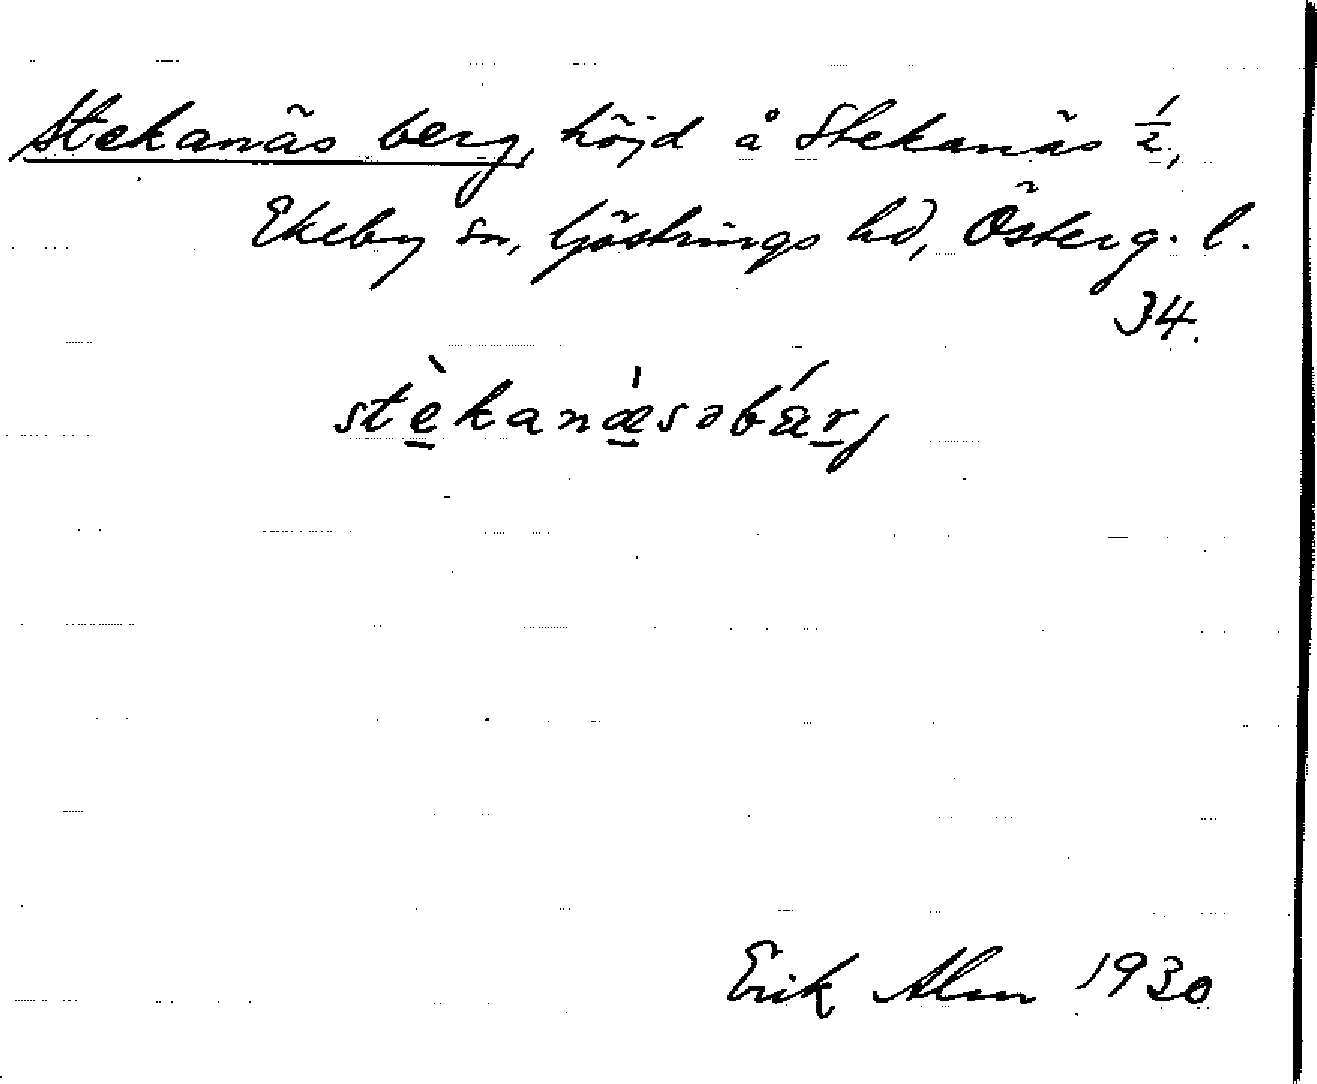 Stekanäs berg, höjd å Stekanäs 1/2,
Ekeby sn, Göstrings hd, Österg. l.
34.
stèkanæsəbærj
Erik Alm 1930